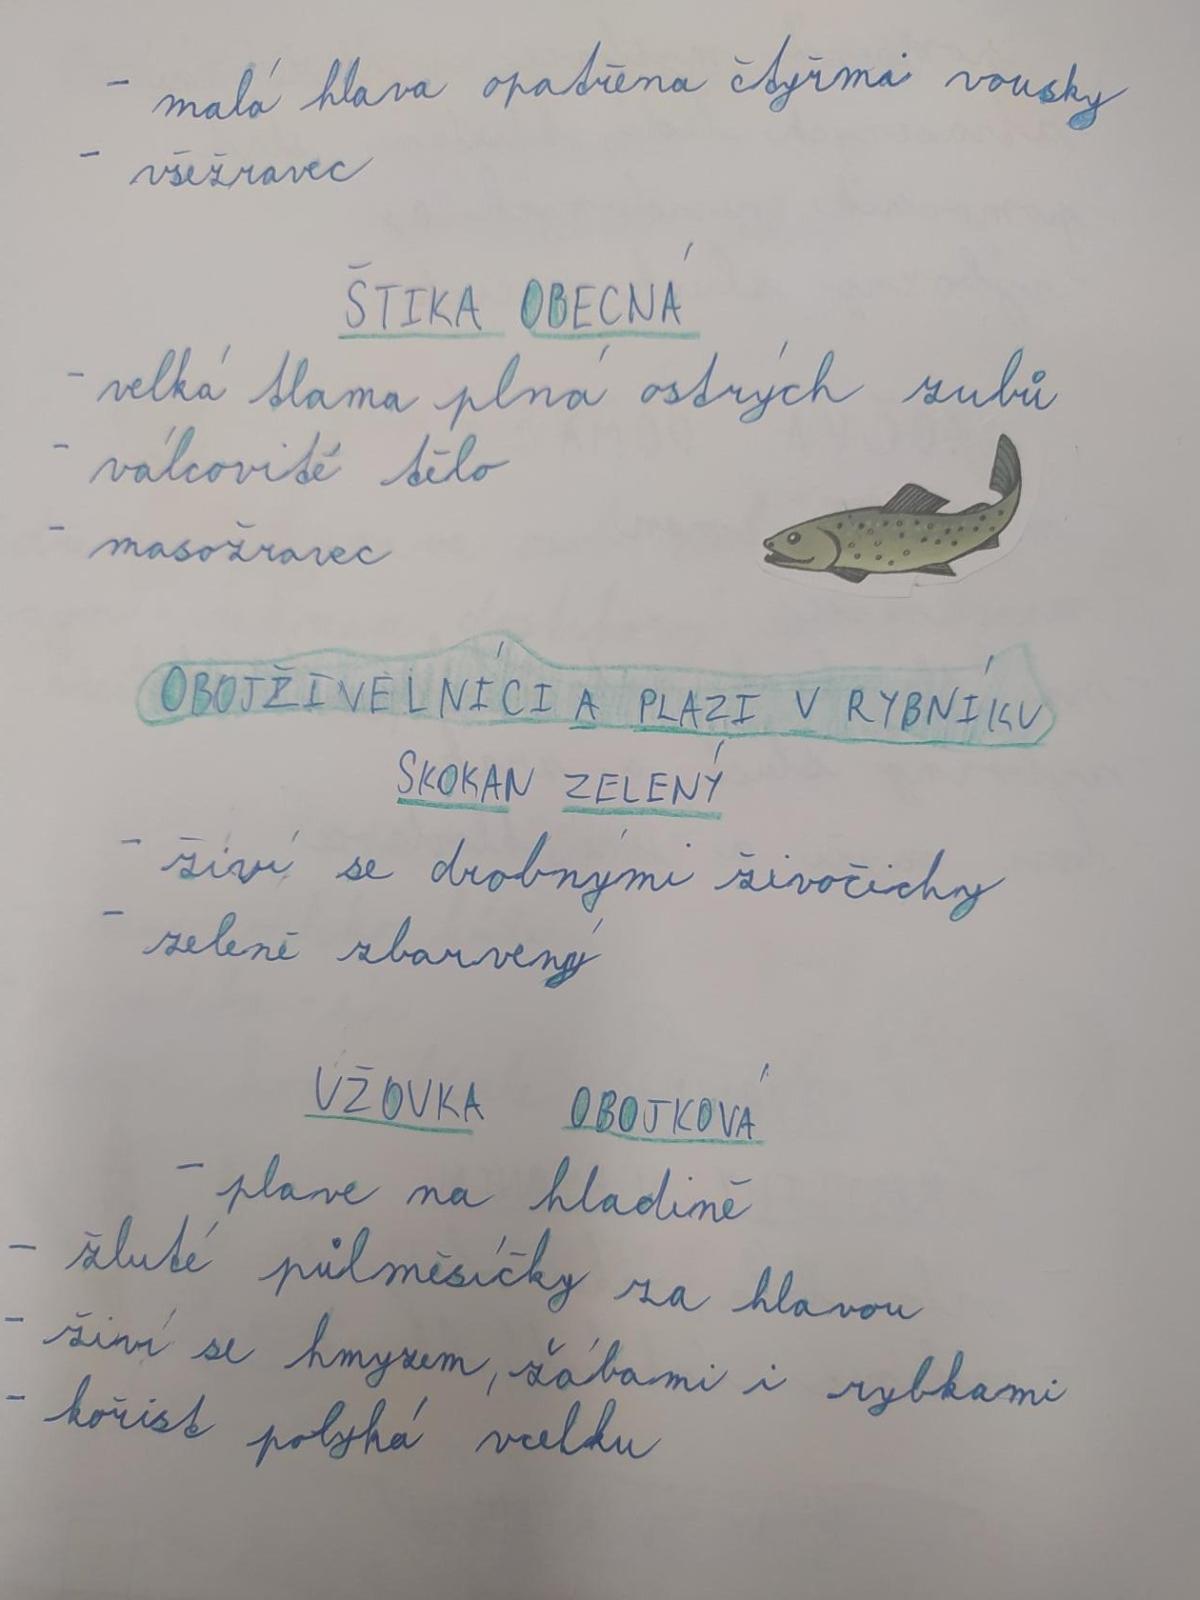 - malá hlava opatřena čtyřma vousky
- všežravec
ŠTIKA OBECNÁ
- velká tlama plná ostrých zubů
- válcovité tělo
- masožravec
OBOJŽIVELNÍCI A PLAZI V RYBNÍKU
SKOKAN ZELENÝ
- živí se drobnými živočichy
- zeleně zbarvený
UŽOVKA OBOJKOVÁ
- plave na hladině
- žluté půlměsíčky za hlavou
- živí se hmyzem, žábami i rybkami
- kořist polyká vcelku